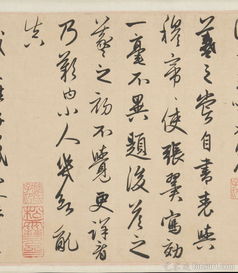 羲之嘗自書表與
穆帝使張翼寫効
一毫不異題後答之
羲之初不覺更詳看
乃歎曰小人幾欲亂
真